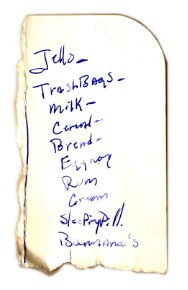 Jello-
TrashBags-
Milk-
Cereal-
Bread-
Eggnog
Rum
Cream
Sleeping Pill
Bananana's